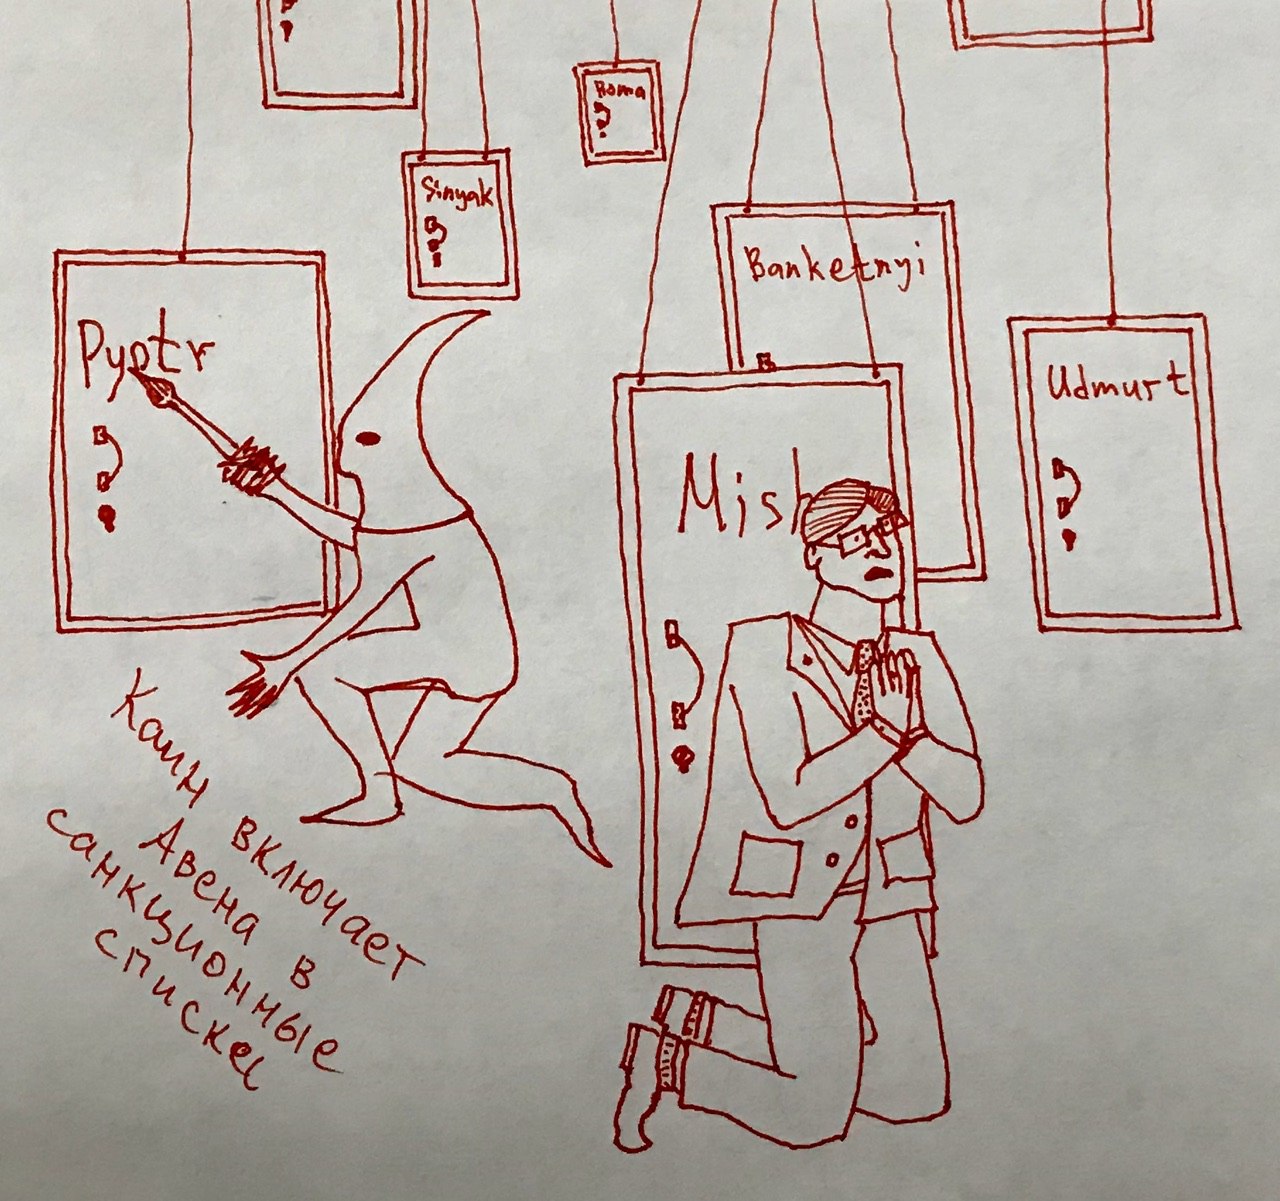 Roma
Sinyak
Banketnyi
Pyotr
Udmurt
Mish
Каин включает
Авена в
санкционные
списки